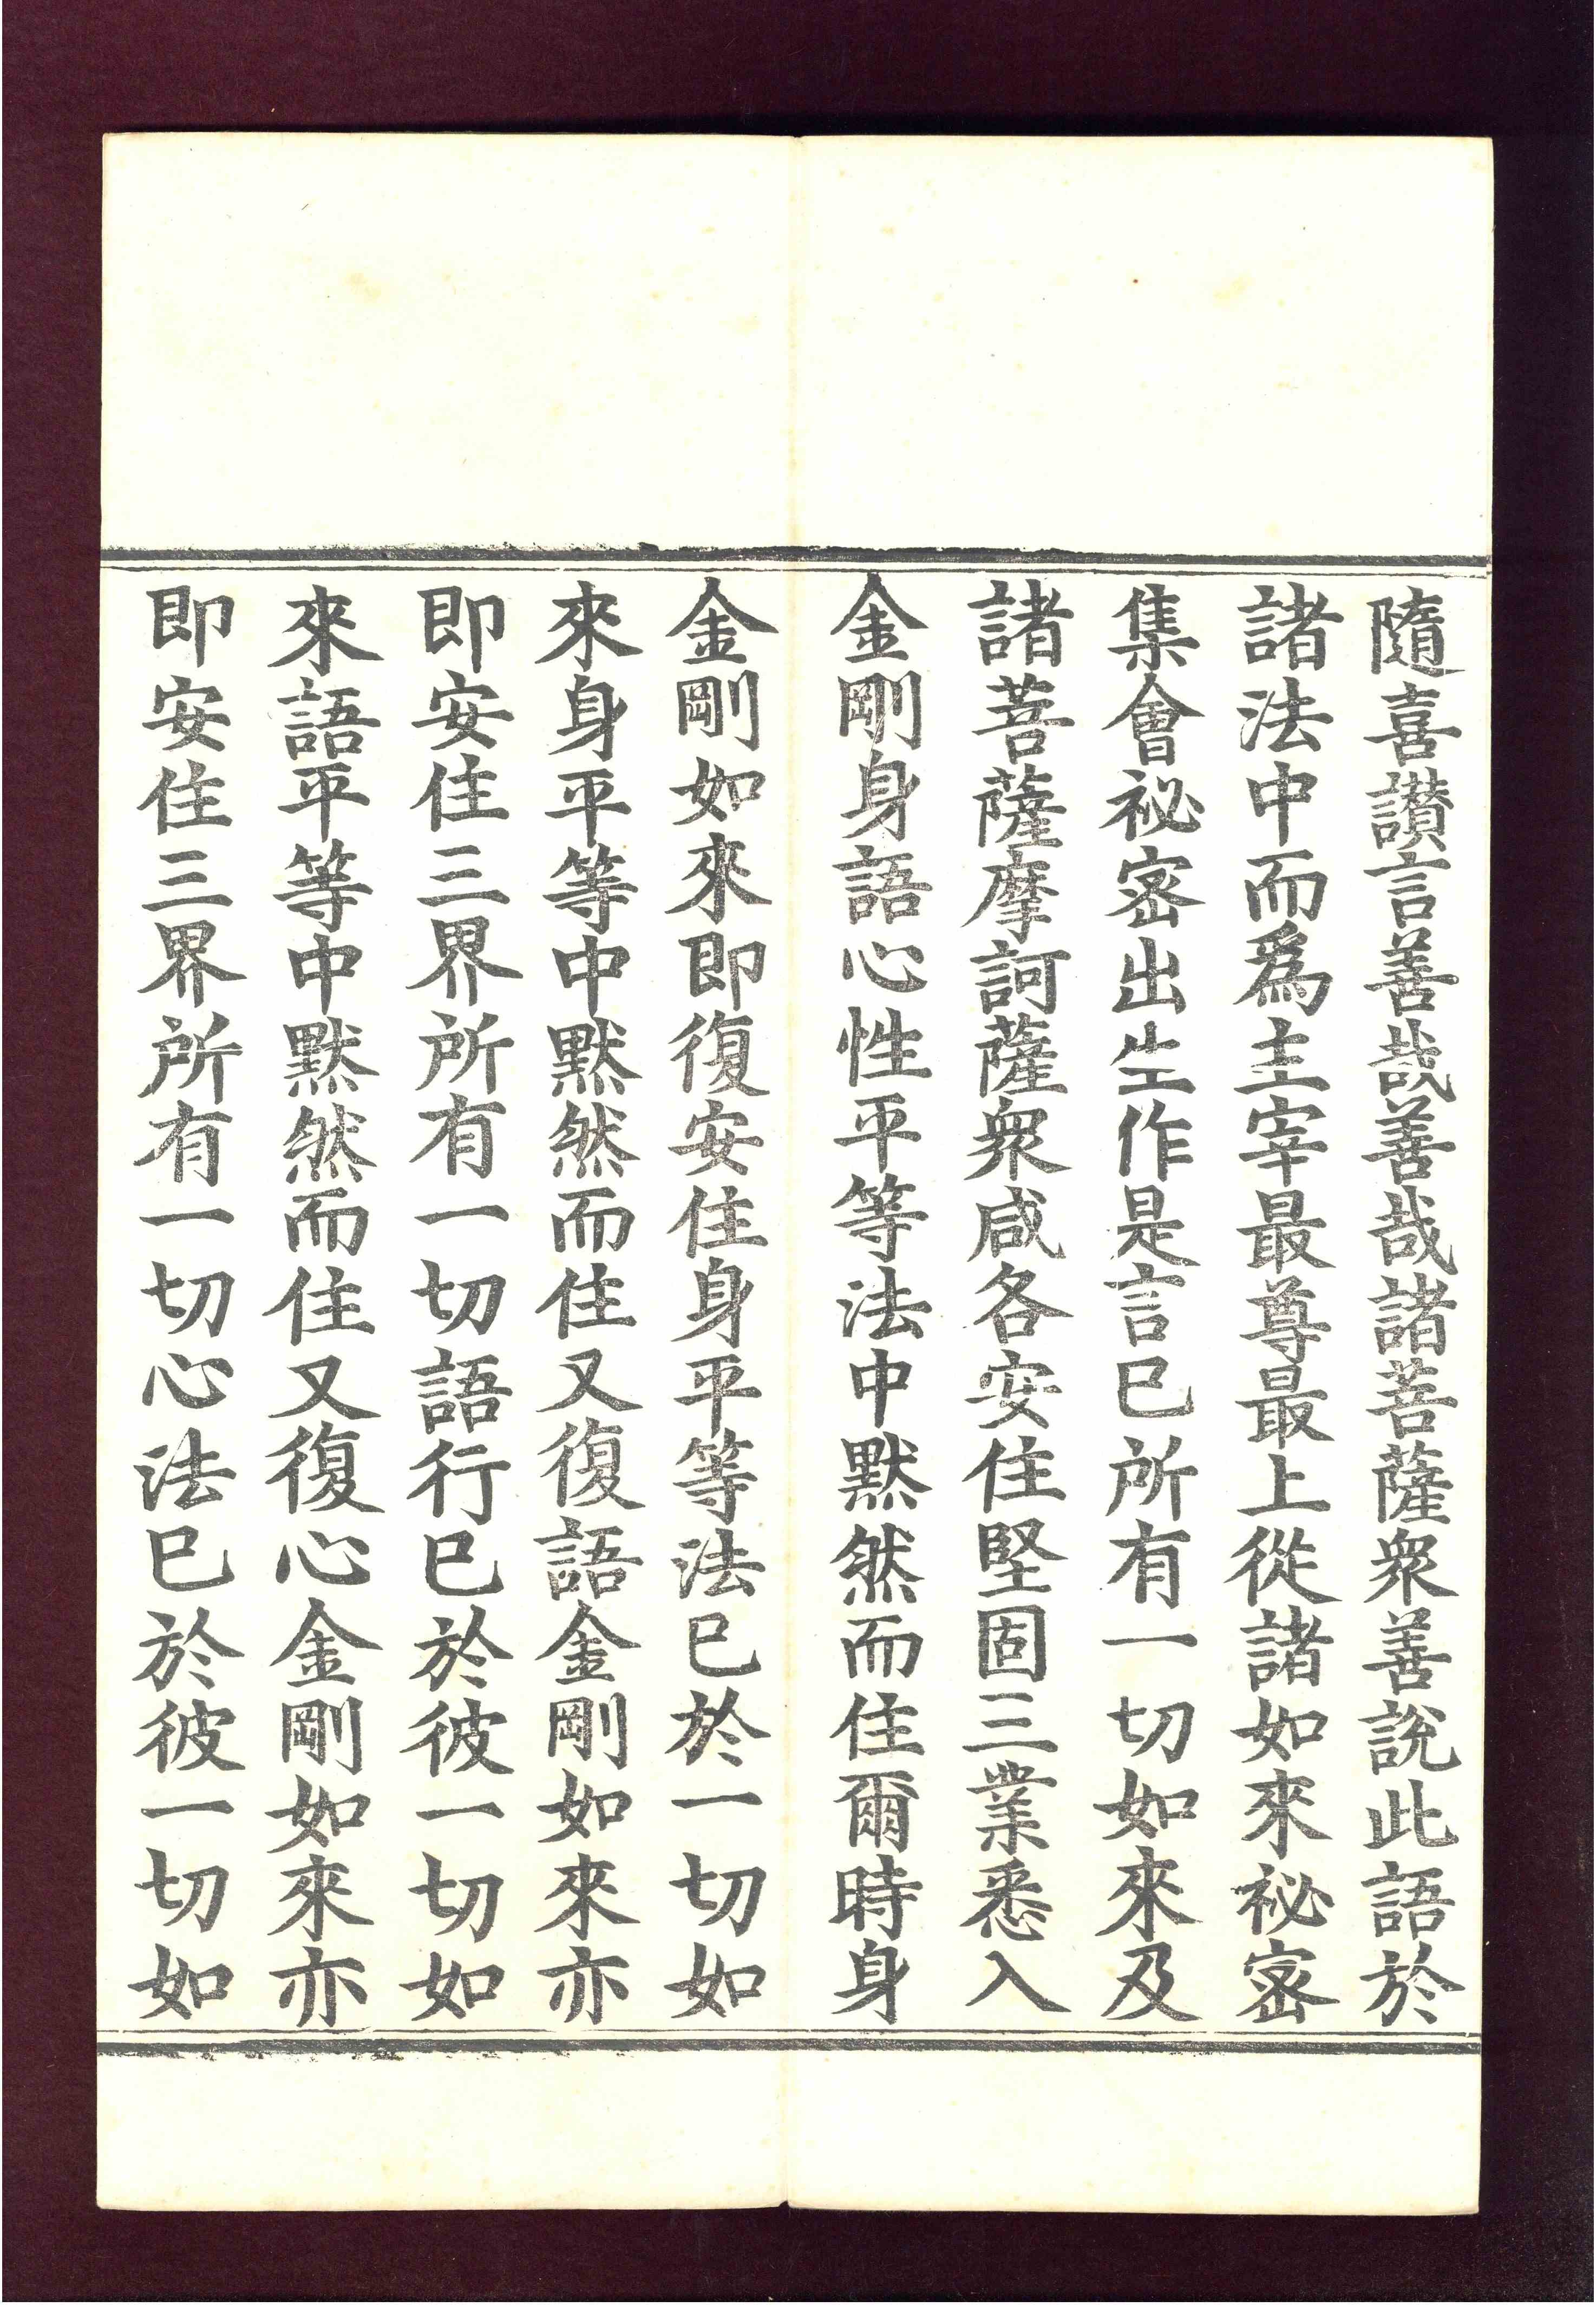 隨喜讃言善哉善哉諸菩薩衆善說此語於
諸法中而爲主宰最尊最上從諸如來祕密
集會祕密出生作是言已所有一切如來及
諸菩薩摩訶薩衆咸各安住堅固三業悉入
金剛身語心性平等法中默然而住爾時身
金剛如來即復安住身平等法已於一切如
來身平等中默然而住又復語金剛如來亦
即安住三界所有一切語行已於彼一切如
來語平等中默然而住又復心金剛如來亦
即安住三界所有一切心法已於彼一切如